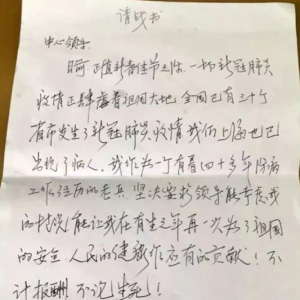 请战书
中心领导:
目前正值新春佳节之际,一场新冠肺炎
疫情正肆虐着祖国大地,全国已有三十个
省市发生了新冠肺炎疫情,我们上海也已
出现了病人。我作为一个有着四十多年防病
工作经历的老兵,坚决要求领导能考虑我
的 能让我在有生之年再一次为了祖国
的安全,人民的健康作应有的贡献!不
计报酬,不论生死!